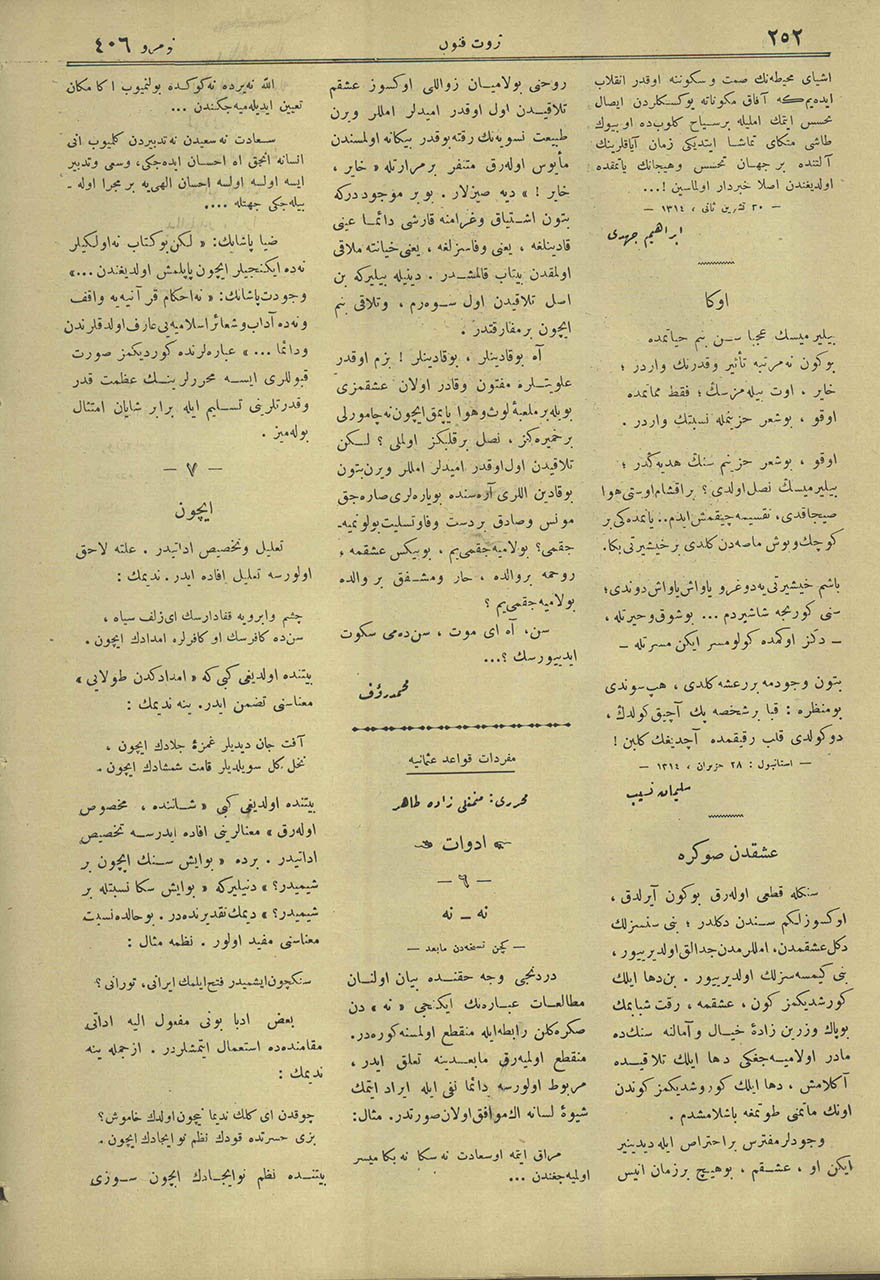 ٢٥٢
ثروت فنون
نومرو ٤٠٦
اشیای محیطه‌نك صمت و سكوننه اوقدر انقلاب
ایده‌یم‌كه آفاق مكوناته یوكسكلردن ایصال
تحسس ایتمك املیله بر سیاح كلوب‌ده او بیوك
طاشی متكای تماشا ایتدیكی زمان آیاقلرینك
آلتنده بر جهان تحسس وهیجانك یاتمقده
اولدیغندن اصلا خبردار اولماسین !...
— ٢٠ تشرین ثانی ، ١٣١٤ —
ابراهیم جهدی
اوكا
بیلیر میسك عجبا سن بنم حیاتمده
بوكون نه‌مرتبه تأثیر وقدرتك واردر ؛
خایر ، اوت بیله‌مزسك ؛ فقط مماتمده
اوقو ، بوشعر حزینمله نسبتك واردر .
اوقو ، بوشعر حزینم سنك هدیه‌كدر ؛
بیلیر میسك نصل اولدی ؟ بر اقشام اوستی هوا
صیجاقدی ، تقسیمه چیقمش ایدم.. یانمده‌كی بر
كوچك وبوش ماصه‌دن كلدی بر خیشیرتی بكا.
باشم خیشیرتی‌یه دوغرو یاواش یاواش دوندی؛
سنی كورنجه شاشیردم ... بوشوق وحیرتله ،
— دكز اوكمده كولومسر ایكن مسرتله —
بتون وجودمه بر رعشه كلدی ، هپ سوندی
بومنظره : قبا بر شخصه پك آچیق كولدك ،
دوكولدی قلب رقیقمده آچدیغك كلبن !
— استانبول : ٢٨ حزیران ، ١٣١٤ —
سلیمان نسیب
عشقدن صوكره
سنكله قطعی اوله‌رق بوكون آیرلدق ،
اوكسوزلكم سندن دكلدر ؛ بنی سنسزلك
دكل عشقمدن، امللرمدن جدالق اولدیرییور ،
بنی كیمسه‌سزلك اولدیرییور . بن‌دها ایلك
كورشدیكمز كون ، عشقمه ، رقت شبابمك
بوپاك وزرین زادۀ خیال و آمالنه سنك‌ده
مادر اولامیه‌جغكی دها ایلك تلاقیده
آكلامش ، دها ایلك كوروشدیكمز كوندن
اونك ماتمنی طوتمغه باشلامشدم .
وجودلر مفترس بر احتراص ایله دیدینیر
ایكن او ، عشقم ، بوهیچ بر زمان انیس
روحنی بولامیان زواللی اوكسوز عشقم
تلاقیدن اول اوقدر امیدلر امللر ویرن
طبیعت نسویه‌نك رقته بوقدر بیكانه اولمسندن
مأیوس اوله‌رق متنفر بر مرارتله « خایر ،
خایر ! » دیه صیزلار . بو بر موجوددركه
بتون اشتیاق وغرامنه قارشی دائما عینی
قادینلغه ، یعنی وفاسزلغه ، یعنی خیانته ملاقی
اولمقدن بیتاب قالمشدر . دینیله بیلیركه بن
اسل تلاقیدن اول سوه‌رم ، وتلاقی بنم
ایچون بر مفارقتدر .
آه بوقادینلر ، بوقادینلر ! بزم اوقدر
علویتلره مفتون وقادر اولان عشقمزی
بویله بر ملعبۀ لوث وهوا یاپمق ایچون نه چامورلی
بر خمیره‌كز ، نصل بر قلبكز اولملی ؟ لكن
تلاقیدن اول اوقدر امیدلر امللر ویرن بتون
بوقادین اللری آره‌سنده بویاره‌لری صاره‌جق
مونس وصادق بر دست وفا وتسلیت بولونمیه‌-
جقمی؟ بولامیه‌جقمی‌یم ، بوبیكس عشقمه ،
روحمه بر والده ، حار ومشفق بر والده
بولامیه‌جقمی‌یم ؟
سن، آه ای موت ، سن‌ده‌می سكوت
ایدییورسك ؟...
محمد رؤف
مفردات قواعد عثمانیه
محرری: منمنلی زاده طاهر
ادوات
— ٦ —
نه — نه
— كچن نسخه‌دن مابعد —
دردنجی وجه حقنده بیان اولنان
مطالعات عباره‌نك ایكنجی « نه » دن
صكره كلن رابطه‌ایله منقطع اولمسنه كوره‌در.
منقطع اولمیه‌رق مابعدینه تعلق ایدر ،
مربوط اولورسه دائما نفی ایله ایراد ایتمك
شیوۀ لسانه اك موافق اولان صورتدر. مثال:
مراق ایتمه اوسعادت نه سكا نه بكا میسر
اولمیه‌جغندن ...
الله نه یرده نه كوكده بولنمیوب اكا مكان
تعیین ایدیله‌میه‌جكندن ...
سعادت نه سعیدن نه تدبیردن كلمیوب انی
انسانه انجق اه احسان ایده‌جكی، وسعی وتدبیر
ایسه اولسه اولسه احسان الهی‌یه بر مجرا اوله -
بیله‌جكی جهتله ....
ضیا پاشانك: « لكن بوكتاب نه اولكیلر
نه‌ده ایكنجیلر ایچون یاپلمش اولدیغندن ...»
وجودت پاشانك: « نه احكام قرآنیه‌یه واقف
ونه‌ده آداب وشعائر اسلامیه‌یی عارف اولدقلرندن
ودائما ... » عباره‌لرنده كوردیكمز صورت
قبوللری ایسه محررلرینك عظمت قدر
وقدرتلرینی تسلیم ایله برابر شایان امتثال
بوله‌میز .
— ٧ —
ایچون
تعلیل وتخصیص اداتیدر . علته لاحق
اولورسه تعلیل افاده ایدر. ندیمك :
چشم وابرویه قفادارسك ای زلف سیاه ،
سن‌ده كافرسك او كافرلره امدادك ایچون .
بیتنده اولدیغی كبی كه « امدادكدن طولایی »
معناسنی تضمن ایدر. ینه ندیمك :
آفت جان دیدیلر غمزۀ جلادك ایچون ،
نخل كل سویلدیلر قامت شمشادك ایچون .
بیتنده اولدیغی كبی « شاننده ، مخصوص
اوله‌رق » معنالرینی افاده ایدرسه تخصیص
اداتیدر . برده « بوایش سنك ایچون بر
شیمیدر؟ » دنیلیركه « بوایش سكا نسبتله بر
شیمیدر؟ » دیمك تقدیرنده‌در. بوحالده نسبت
معناسنی مفید اولور . نظمه مثال :
سنكچون ایشمیدر فتح ایلمك ایرانی، تورانی ؟
بعض ادبا بونی مفعول الیه اداتی
مقامنده‌ده استعمال ایتمشلردر . ازجمله ینه
ندیمك :
چوقدن ای كلك ندیما نیچون اولدك خاموش؟
بزی حسرتده قودك نظم نو ایجادك ایچون .
بیتنده نظم نو ایجادك ایچون سوزی